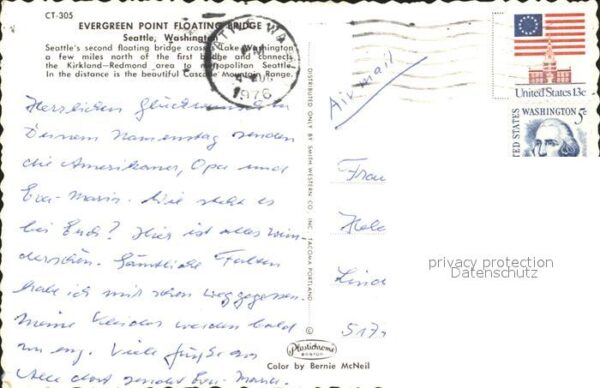 CT-305
EVERGREEN POINT FLOATING BRIDGE
Seattle, Washington
Seattle's second floating bridge crosses Lake Washington
a few miles north of the first bridge and connects
the Kirkland-Redmond area to metropolitan Seattle.
In the distance is the beautiful Cascade Mountain Range.
WA
PM
1976
United States 13c
UNITED STATES WASHINGTON 5c
Air mail
Herzlichen Glückwunsch zu
Deinem Namenstag senden
die Amerikaner, Opa und
Eva-Maria. Wie steht es
bei Euch? Hier ist alles wun-
derschön. Sämtliche Falten
habe ich mir schon weggegessen.
Meine Kleider werden bald
zu eng. Viele Grüße an
Alle dort sendet Eva-Maria.
DISTRIBUTED ONLY BY SMITH WESTERN CO. INC. TACOMA PORTLAND
©
Plastichrome
BOSTON
Color by Bernie McNeil
Frau
Hele
Linde
517
privacy protection
Datenschutz